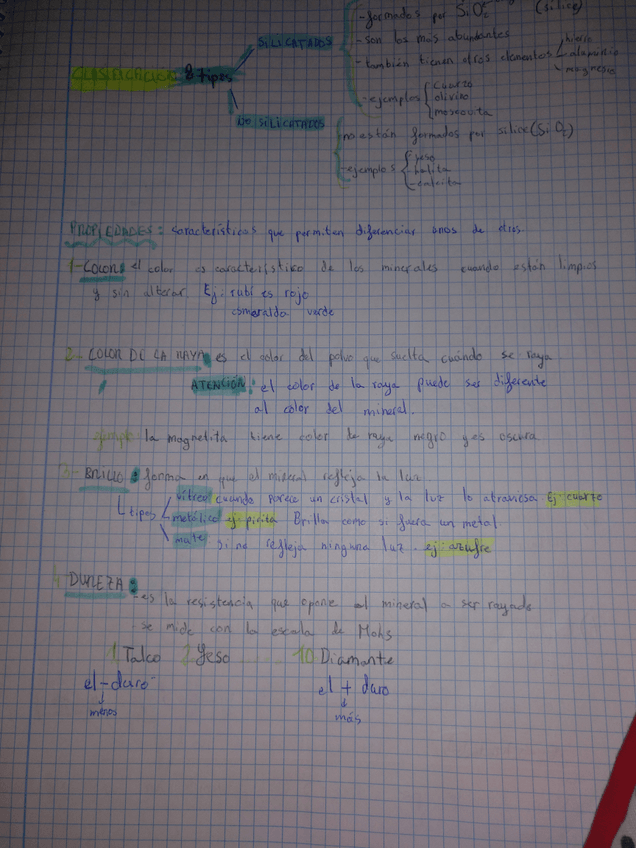 - formados por SiO2 (sílice)
SILICATADOS - son los más abundantes
- también tienen otros elementos hierro
aluminio
magnesio
CLASIFICACIÓN 8 tipos
- ejemplos cuarzo
olivino
moscovita
NO SILICATADOS
no están formados por sílice (SiO2)
- ejemplos yeso
- halita
- calcita
PROPIEDADES: características que permiten diferenciar unos de otros.
1- COLOR: el color es característico de los minerales cuando están limpios
y sin alterar. Ej: rubí es rojo
esmeralda verde
2- COLOR DE LA RAYA: es el color del polvo que suelta cuándo se raya
ATENCIÓN: el color de la raya puede ser diferente
al color del mineral.
ejemplo la magnetita tiene color de raya negro y es oscura
3- BRILLO: forma en que el mineral refleja la luz
tipos vítreo cuando parece un cristal y la luz lo atraviesa Ej: cuarzo
metálico ej: pirita Brilla como si fuera un metal
mate si no refleja ninguna luz. ej: azufre
4- DUREZA:
- es la resistencia que opone el mineral a ser rayado
- se mide con la escala de Mohs
1. Talco 2. Yeso ........ 10. Diamante
el - duro el + duro
menos más